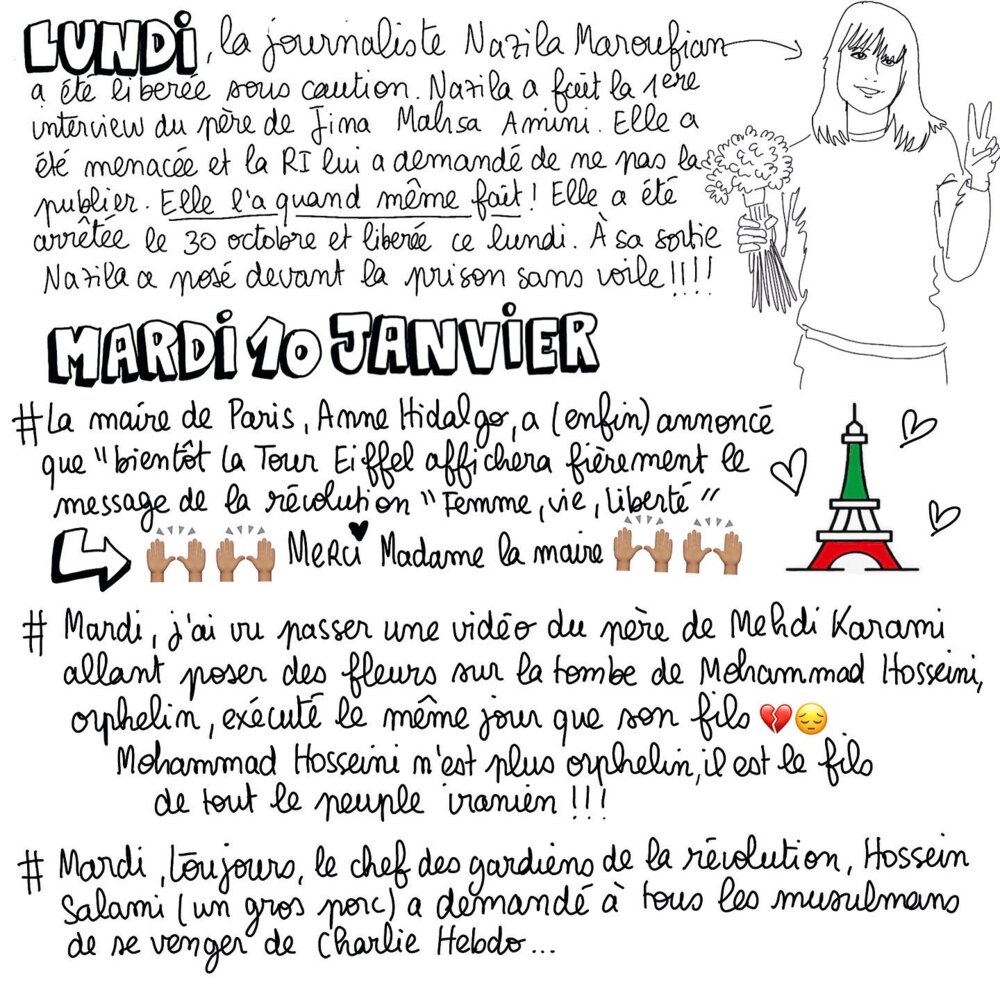 LUNDI, la journaliste Nazila Maroufian
a été liberée sous caution. Nazila a fait la 1ere
interview du père de Jina Mahsa Amini. Elle a
été menacée et la RI lui a demandé de ne pas la
publier. Elle l'a quand même fait! Elle a été
arrêtée le 30 octobre et liberée ce lundi. À sa sortie
Nazila a posé devant la prison sans voile!!!!
MARDI 10 JANVIER
#La maire de Paris, Anne Hidalgo, a (enfin) annoncé
que "bientôt la Tour Eiffel affichera fièrement le
message de la révolution "Femme, vie, liberté"
🙌🏽 🙌🏽 Merci Madame la maire 🙌🏽 🙌🏽
# Mardi, j'ai vu passer une vidéo du père de Mehdi Karami
allant poser des fleurs sur la tombe de Mohammad Hosseini,
orphelin, exécuté le même jour que son fils 💔😔
Mohammad Hosseini n'est plus orphelin, il est le fils
de tout le peuple iranien !!!
# Mardi, toujours, le chef des gardiens de la révolution, Hossein
Salami (un gros porc) a demandé à tous les musulmans
de se venger de Charlie Hebdo...